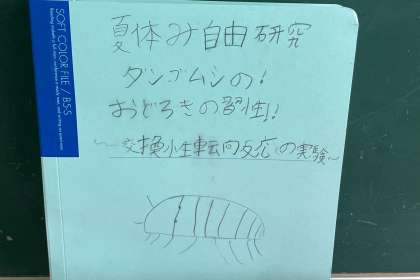 SOFT COLOR FILE / B5-S
夏休み自由研究
ダンゴムシの!
おどろきの習性!!
~交換性転向反応の実験~